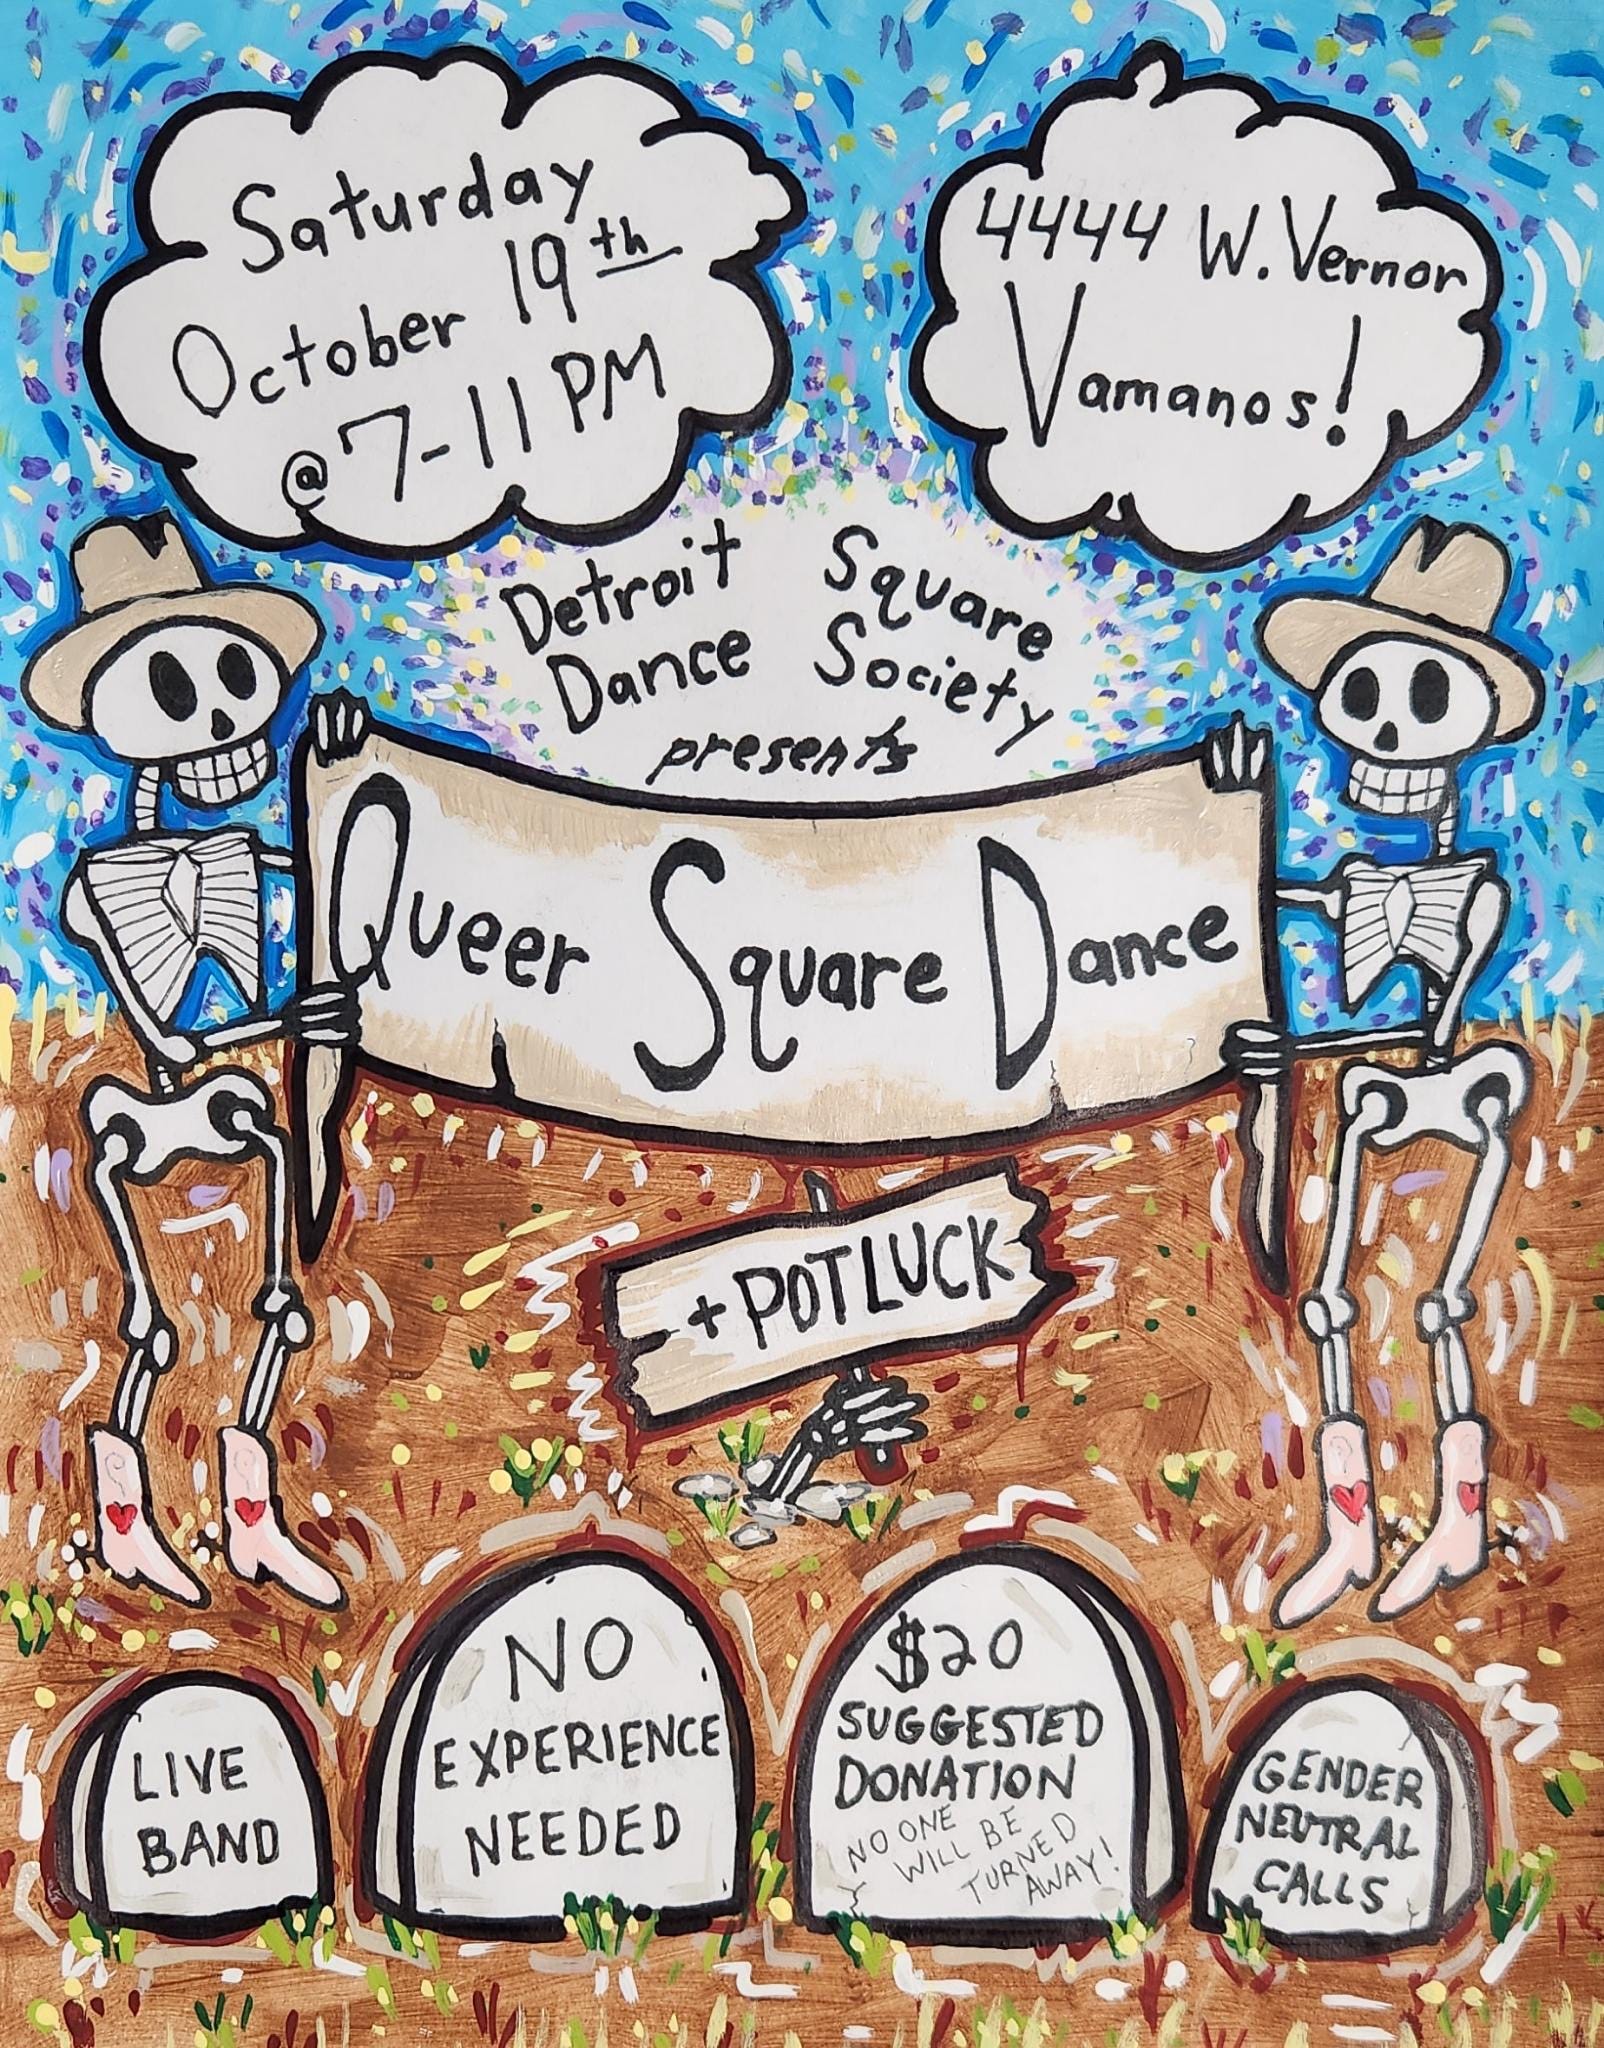 Saturday
October 19th
@ 7-11 PM
4444 W. Vernor
Vamanos!
Detroit Square
Dance Society
presents
Queer Square Dance
+ POTLUCK
LIVE
BAND
NO
EXPERIENCE
NEEDED
$20
SUGGESTED
DONATION
NO ONE
WILL BE
TURNED
AWAY!
GENDER
NEUTRAL
CALLS